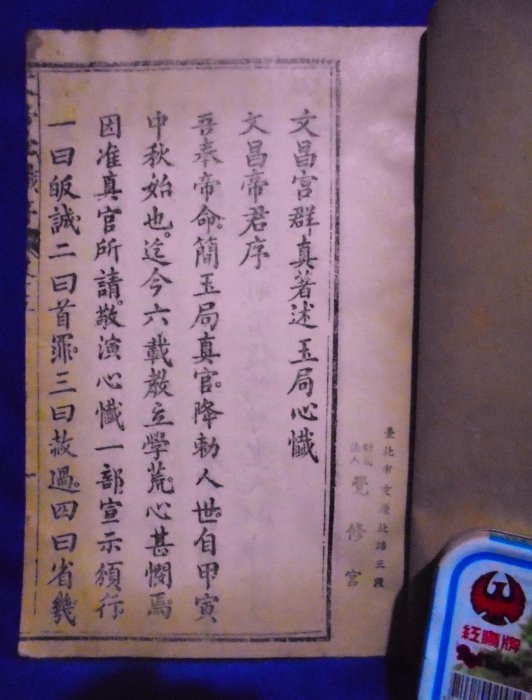 臺北市重慶北路三段
財團法人 覺修宮
文昌宮群真著述玉局心懺
文昌帝君序
吾奉帝命。簡玉局真官。降勅人世。自甲寅
中秋始也。迄今六載教立學荒。心甚憫焉。
因准真官所請。敬演心懺一部。宣示頒行
一曰皈誠二曰首罪三曰赦過四曰省幾
紅鷹牌